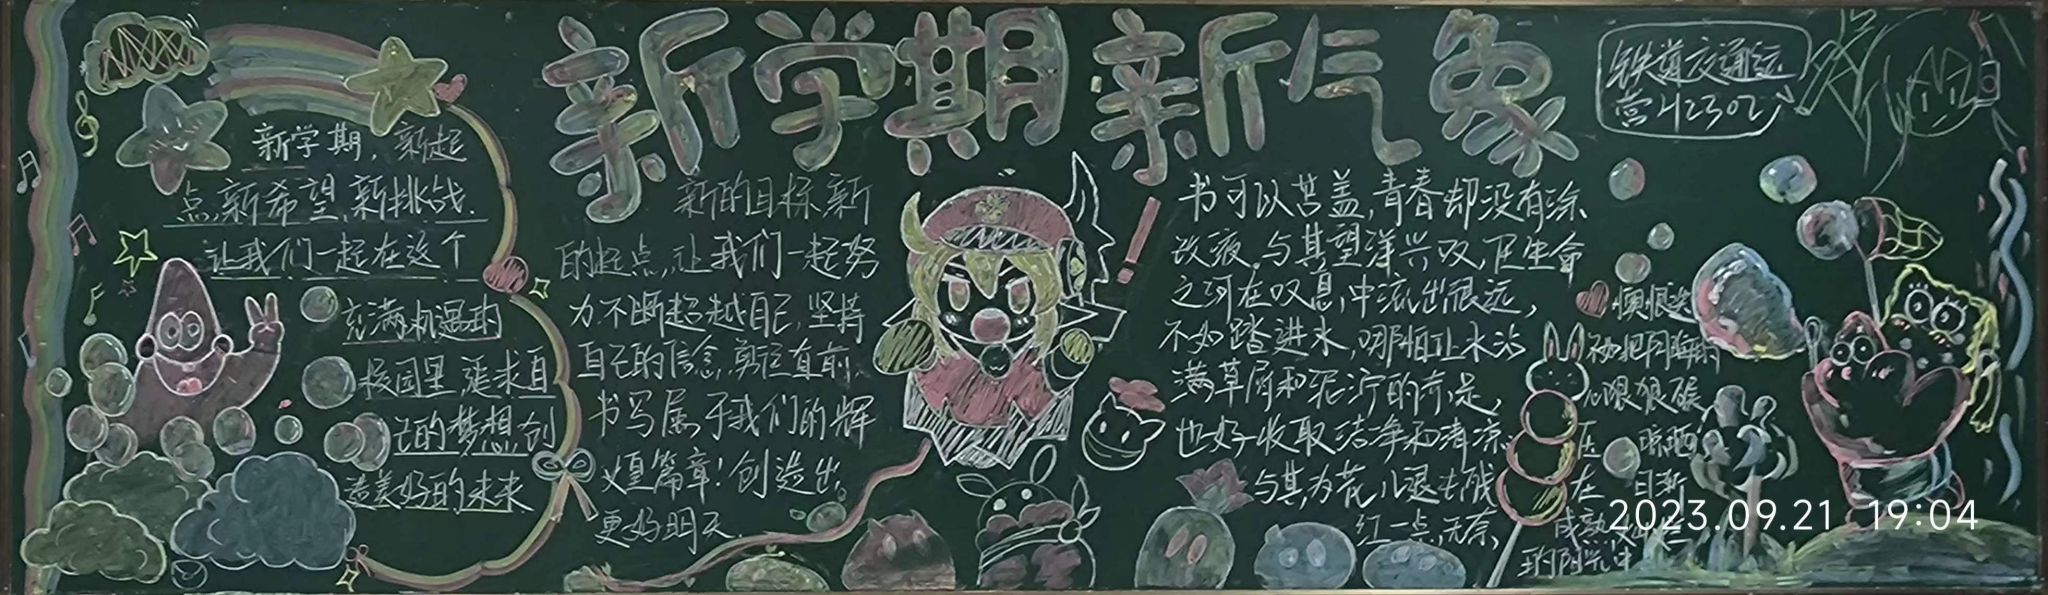 新学期新气象
铁道交通运
营H2302
新学期,新起
点,新希望,新挑战.
让我们一起在这个
充满机遇的
校园里,追求自
己的梦想,创
造美好的未来
新的目标新
的起点,让我们一起努
力.不断超越自己,坚持
自己的信念,勇往直前,
书写属于我们的辉
煌篇章!创造出
更好明天.
书可以苫盖,青春却没有涂
改液.与其望洋兴叹,在生命
之河在叹息,中流出很远,
不如踏进水,哪怕让水沾
满草屑和泥泞的赤足,
也好收取洁净和清凉.
与其,为花儿退去残
红一点,无奈,
懊恨
不如把阴晦的
心狠狠碾
压 晾晒
在 日新
成熟
的阳光中
2023.09.21 19:04